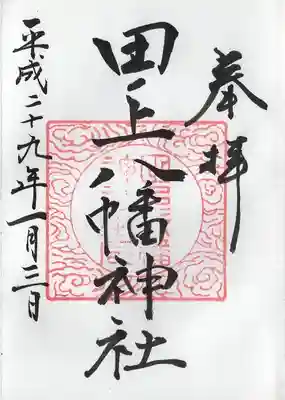 奉拝
田上八幡神社
平成二十九年一月三日